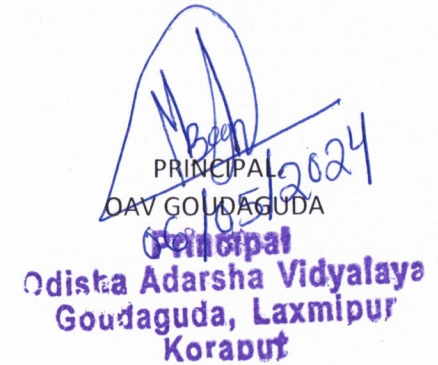 PRINCIPAL
OAV GOUDAGUDA
06/05/2024
Principal
Odisha Adarsha Vidyalaya
Goudaguda, Laxmipur
Koraput